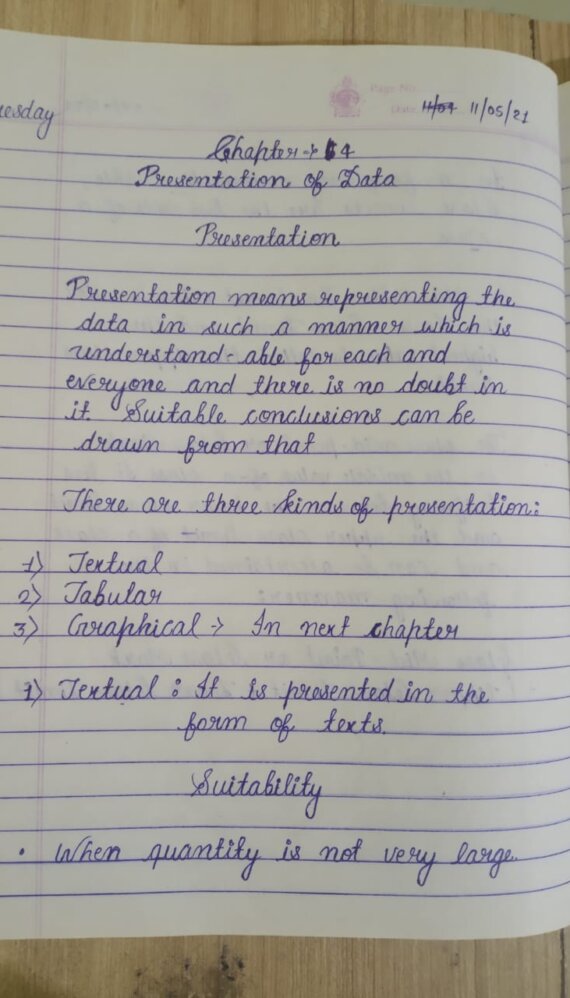 Page No.
Date 11/05/21
esday
Chapter → 4
Presentation of Data
Presentation
Presentation means representing the
data in such a manner which is
understand-able for each and
everyone and there is no doubt in
it. Suitable conclusions can be
drawn from that
There are three kinds of presentation:
1) Textual
2) Tabular
3) Graphical → In next chapter
1) Textual : It is presented in the
form of texts.
Suitability
• When quantity is not very large.